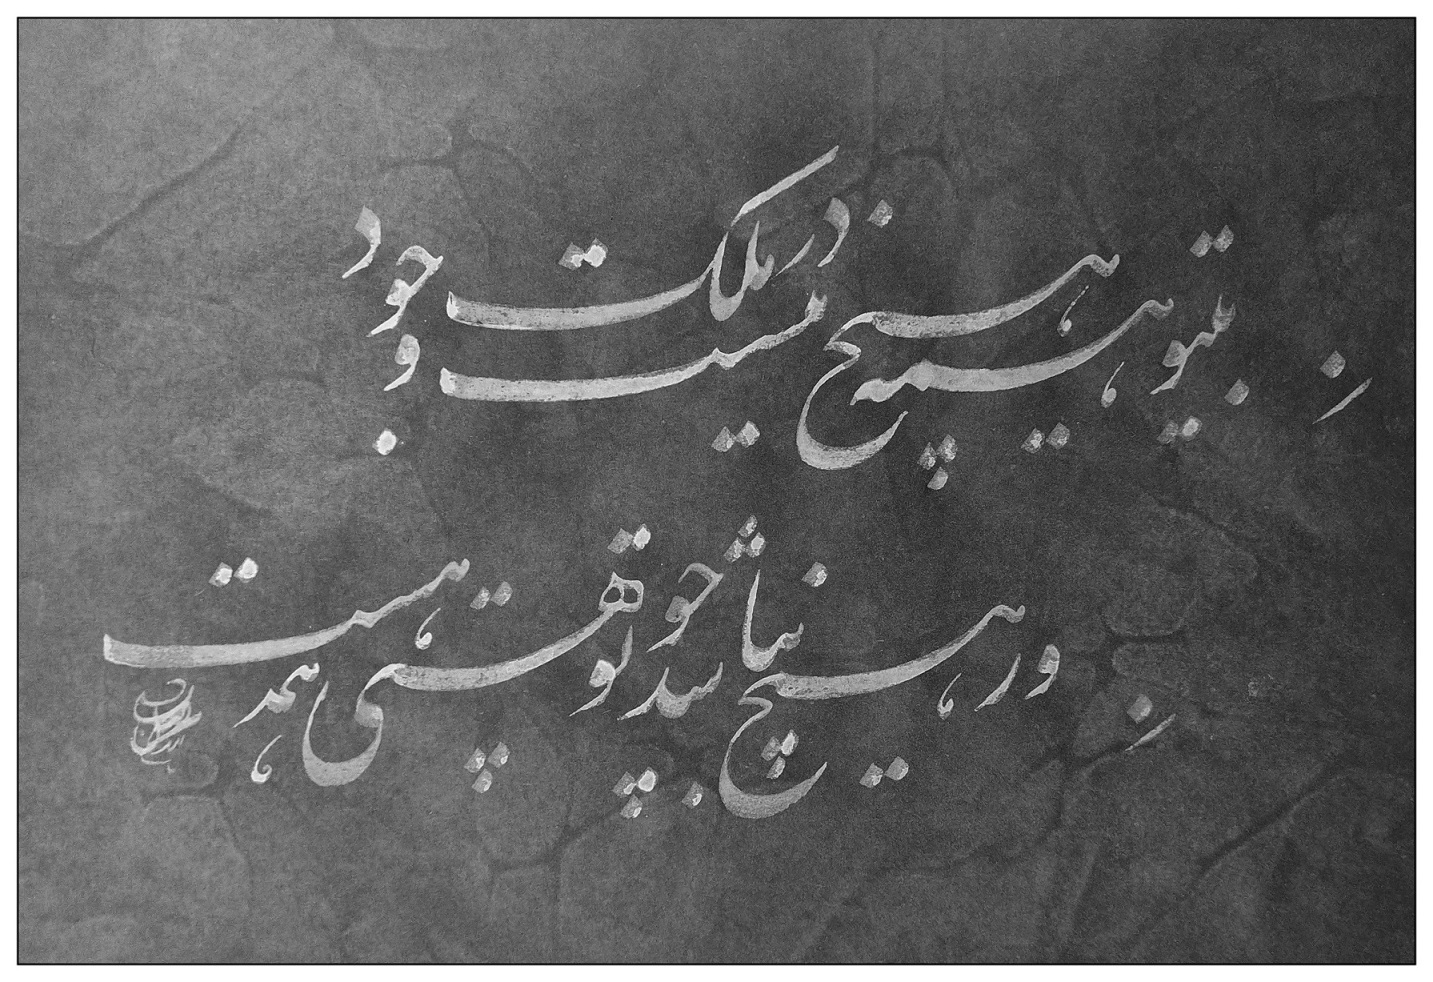 بیتو همه هیچ نیست در ملک وجود
ور هیچ نباشد چو تو هستی همه هست